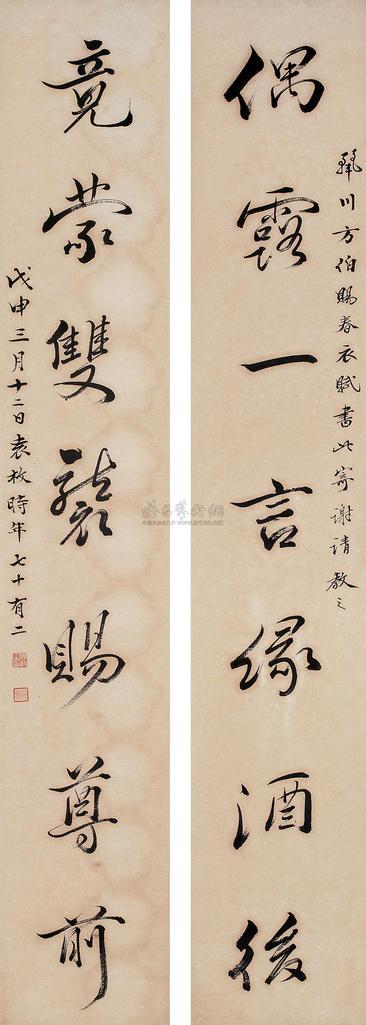 川方伯賜春衣賦書此寄謝請教之
偶露一言緣酒後
竟蒙雙襲賜尊前
戊申三月十二日袁枚時年七十有二